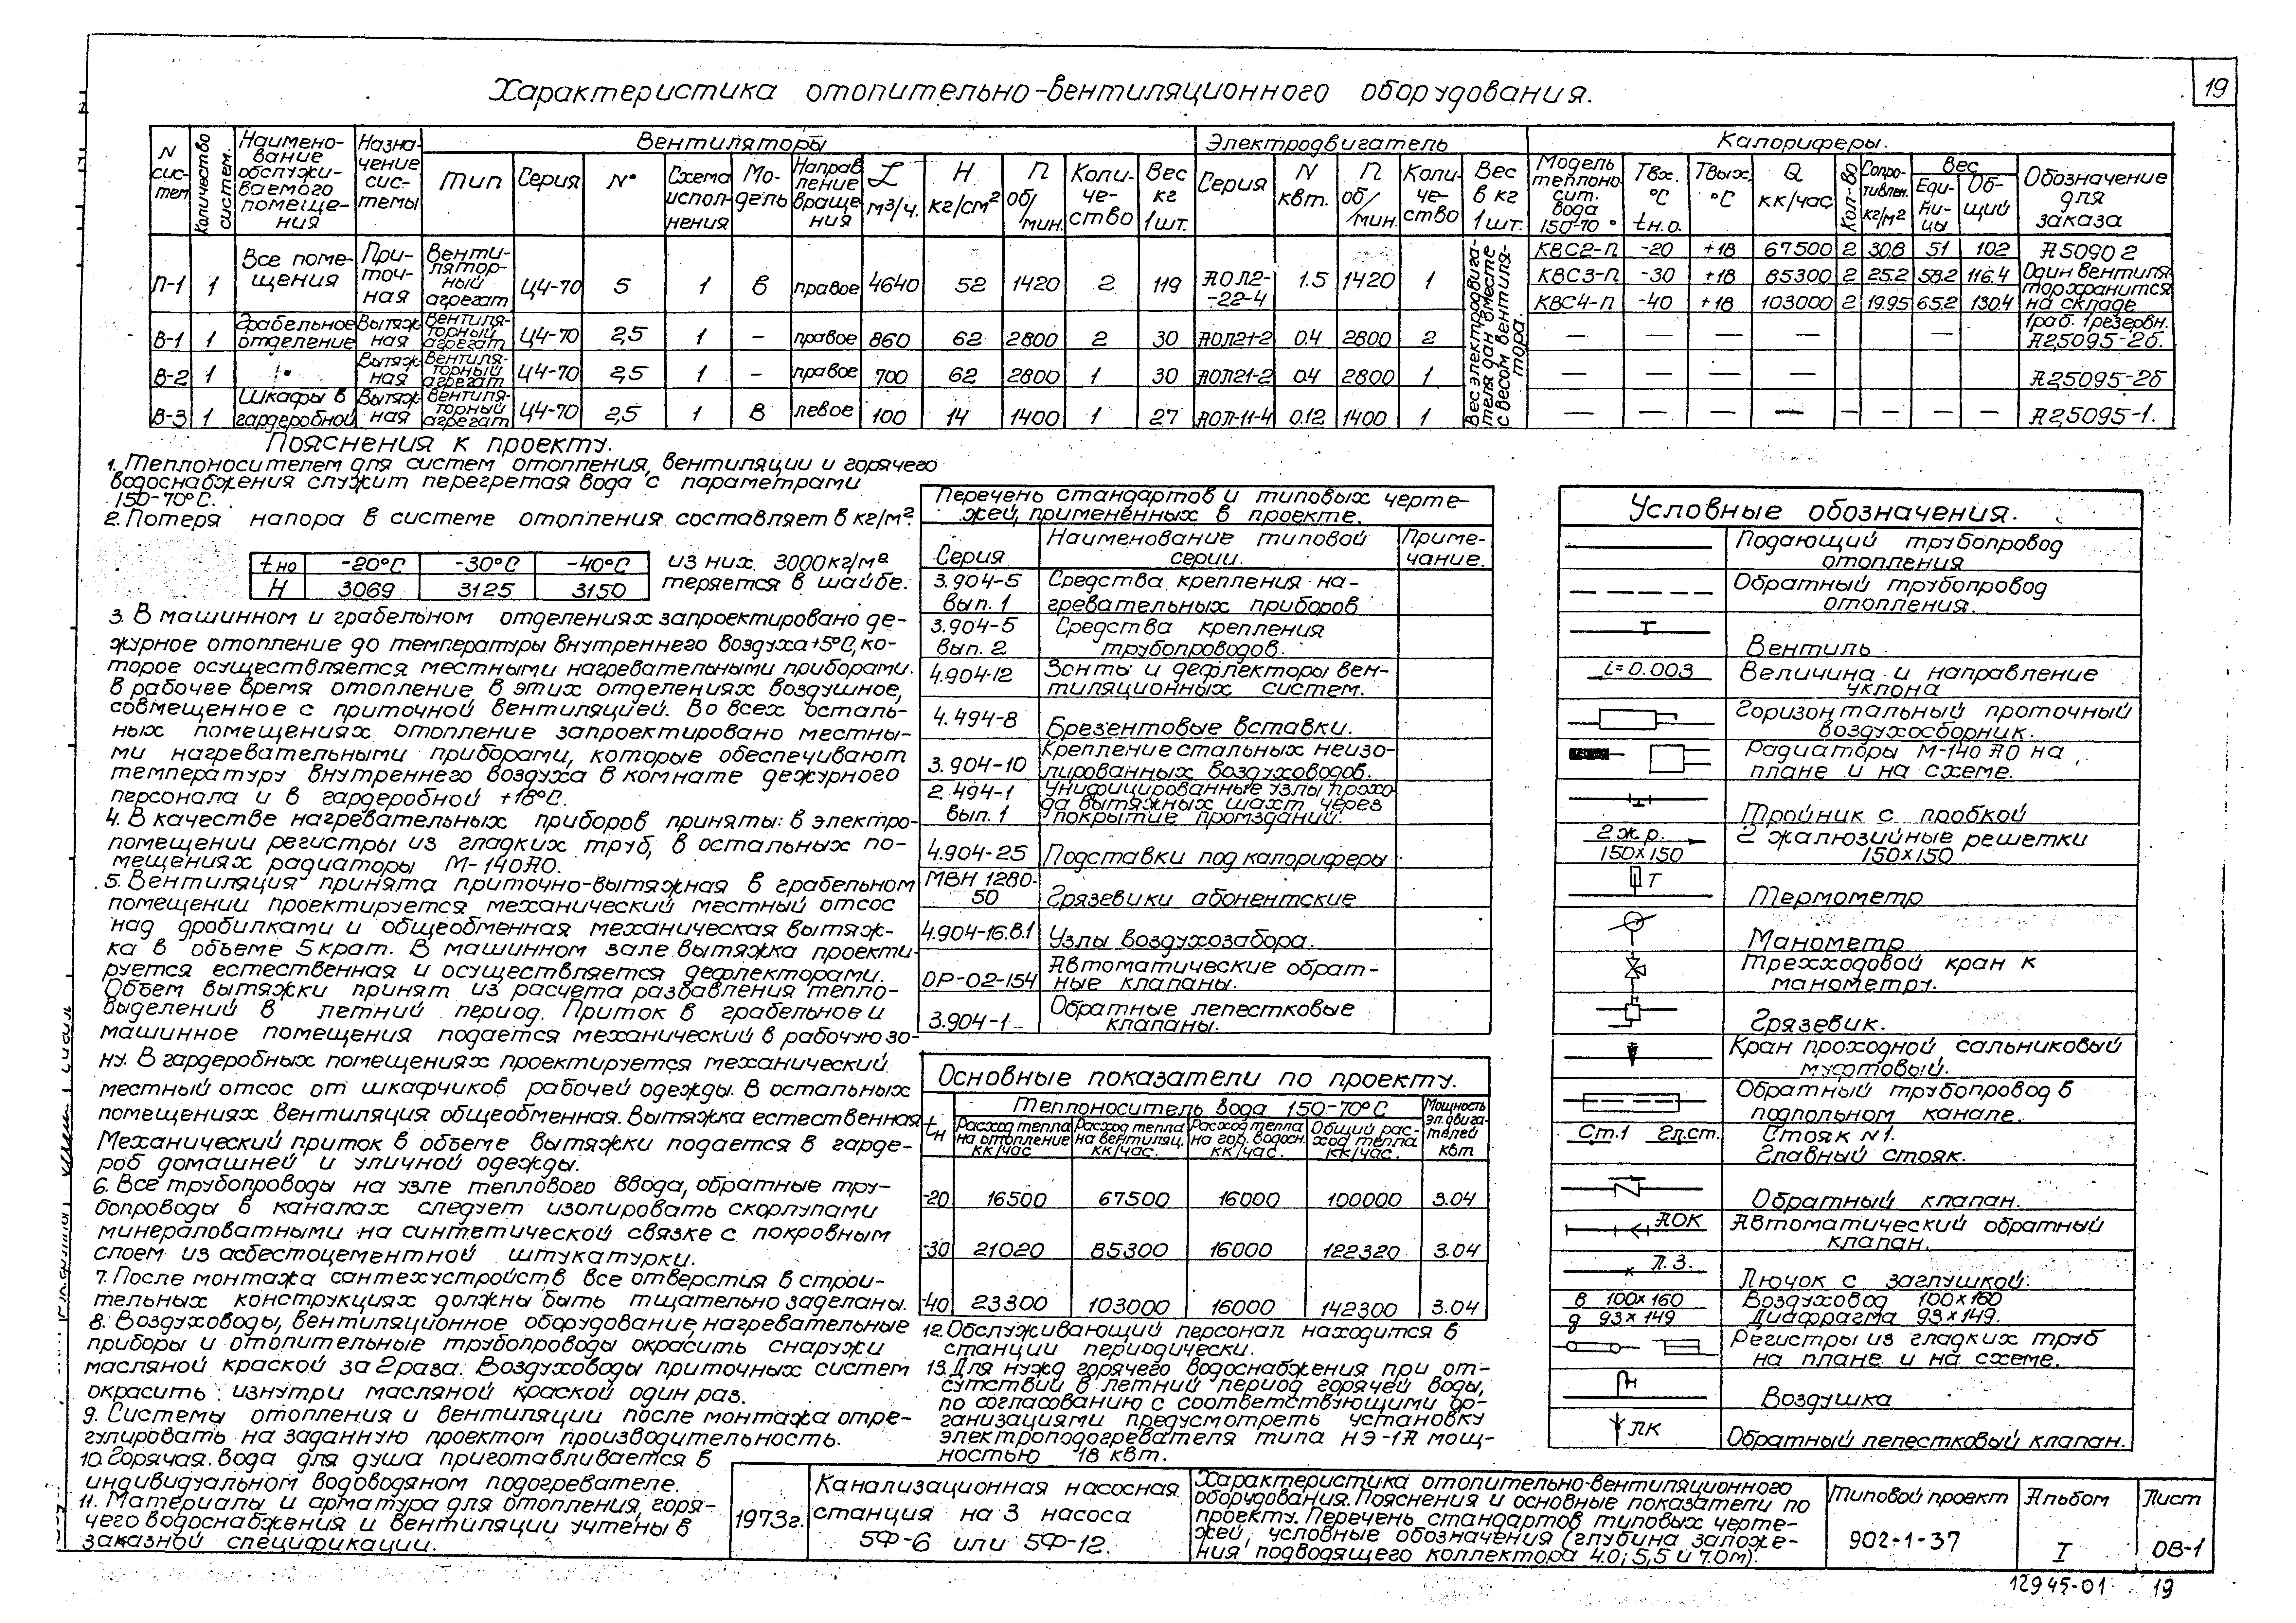 19
Характеристика отопительно-вентиляционного оборудования.
N систем
Количество систем.
Наименование обслуживаемого помещения
Назначение системы
Вентиляторы
Электродвигатель
Калориферы.
Тип
Серия
N°
Схема исполнения
Модель
Направление вращения
L м³/ч.
H кг/см²
П об/мин.
Количество
Вес кг 1шт.
Серия
N квт.
П об/мин.
Количество
Вес в кг 1шт.
Модель теплоносит. вода 150-70°
Твх. °C tн.о.
Твых. °C
Q кк/час
Кол-во
Сопротивлен. кг/м²
Вес
Единицы
Общий
Обозначение для заказа
П-1 1 Все помещения Приточная Вентиляторный агрегат Ц4-70 5 1 В правое 4640 52 1420 2 119 АОЛ2-22-4 1.5 1420 1
Вес электродвигателя дан вместе с весом вентилятора.
КВС2-П -20 +18 67500 2 30.8 51 102 А5090 2
КВС3-П -30 +18 85300 2 25.2 58.2 116.4 Один вентилятор хранится
КВС4-П -40 +18 103000 2 19.95 65.2 130.4 на складе
В-1 1 Грабельное отделение Вытяжная Вентиляторный агрегат Ц4-70 2,5 1 – правое 860 62 2800 2 30 АОЛ21-2 0.4 2800 2 — — — — — 1раб. 1резервн. А2,5095-2б.
В-2 1 Вытяжная Вентиляторный агрегат Ц4-70 2,5 1 – правое 700 62 2800 1 30 АОЛ21-2 0.4 2800 1 — — — — А2,5095-2б
В-3 1 Шкафы в гардеробной Вытяжная Вентиляторный агрегат Ц4-70 2,5 1 В левое 100 14 1400 1 27 АОЛ-11-4 0.12 1400 1 — — — — — — — — А2,5095-1.
Пояснения к проекту.
1. Теплоносителем для систем отопления, вентиляции и горячего
водоснабжения служит перегретая вода с параметрами
150-70°С.
2. Потеря напора в системе отопления составляет в кг/м²
tно -20°С -30°С -40°С
Н 3069 3125 3150
из них 3000кг/м²
теряется в шайбе.
3. В машинном и грабельном отделениях запроектировано де-
журное отопление до температуры внутреннего воздуха +5°С, ко-
торое осуществляется местными нагревательными приборами.
В рабочее время отопление в этих отделениях воздушное,
совмещенное с приточной вентиляцией. Во всех осталь-
ных помещениях отопление запроектировано местны-
ми нагревательными приборами, которые обеспечивают
температуру внутреннего воздуха в комнате дежурного
персонала и в гардеробной +18°С.
4. В качестве нагревательных приборов приняты: в электро-
помещении регистры из гладких труб, в остальных по-
мещениях радиаторы М-140АО.
5. Вентиляция принята приточно-вытяжная в грабельном
помещении проектируется механический местный отсос
над дробилками и общеобменная механическая вытяж-
ка в объеме 5крат. В машинном зале вытяжка проекти-
руется естественная и осуществляется дефлекторами.
Объем вытяжки принят из расчета разбавления тепло-
выделений в летний период. Приток в грабельное и
машинное помещения подается механический в рабочую зо-
ну. В гардеробных помещениях проектируется механический
местный отсос от шкафчиков рабочей одежды. В остальных
помещениях вентиляция общеобменная. Вытяжка естественная
Механический приток в объеме вытяжки подается в гарде-
роб домашней и уличной одежды.
6. Все трубопроводы на узле теплового ввода, обратные тру-
бопроводы в каналах следует изолировать скорлупами
минераловатными на синтетической связке с покровным
слоем из асбестоцементной штукатурки.
7. После монтажа сантехустройств все отверстия в строи-
тельных конструкциях должны быть тщательно заделаны.
8. Воздуховоды, вентиляционное оборудование, нагревательные
приборы и отопительные трубопроводы окрасить снаружи
масляной краской за 2раза. Воздуховоды приточных систем
окрасить изнутри масляной краской один раз.
9. Системы отопления и вентиляции после монтажа отре-
гулировать на заданную проектом производительность.
10. Горячая вода для душа приготавливается в
индивидуальном водоводяном подогревателе.
11. Материалы и арматура для отопления, горя-
чего водоснабжения и вентиляции учтены в
заказной спецификации.
Перечень стандартов и типовых черте-
жей, примененных в проекте.
Серия Наименование типовой серии. Примечание.
3.904-5 вып. 1 Средства крепления нагревательных приборов
3.904-5 вып. 2 Средства крепления трубопроводов.
4.904-12 Зонты и дефлекторы вентиляционных систем.
4.494-8 Брезентовые вставки.
3.904-10 Крепление стальных неизолированных воздуховодов.
2.494-1 вып. 1 Унифицированные узлы прохода вытяжных шахт через покрытие промзданий.
4.904-25 Подставки под калориферы
МВН 1280-50 Грязевики абонентские
4.904-16.В.1 Узлы воздухозабора.
ОР-02-154 Автоматические обратные клапаны.
3.904-1 Обратные лепестковые клапаны.
Основные показатели по проекту.
tн
Теплоноситель вода 150-70°С
Мощность эл.двигателей квт
Расход тепла на отопление кк/час
Расход тепла на вентиляц. кк/час.
Расход тепла на гор. водосн. кк/час.
Общий расход тепла кк/час.
-20 16500 67500 16000 100000 3.04
-30 21020 85300 16000 122320 3.04
-40 23300 103000 16000 142300 3.04
12. Обслуживающий персонал находится в
станции периодически.
13. Для нужд горячего водоснабжения при от-
сутствии в летний период горячей воды,
по согласованию с соответствующими ор-
ганизациями предусмотреть установку
электроподогревателя типа НЭ-1А мощ-
ностью 18 квт.
Условные обозначения.
Подающий трубопровод отопления
Обратный трубопровод отопления.
Вентиль
i=0.003 Величина и направление уклона
Горизонтальный проточный воздухосборник.
Радиаторы М-140 АО на плане и на схеме.
Тройник с пробкой
2 ж.р. 150х150 2 жалюзийные решетки 150х150
Т Термометр
Манометр
Трехходовой кран к манометру.
Грязевик.
Кран проходной сальниковый муфтовый.
Обратный трубопровод в подпольном канале.
Ст.1 Гл.ст. Стояк N1. Главный стояк.
Обратный клапан.
АОК Автоматический обратный клапан.
Л.З. Лючок с заглушкой.
в 100х160 Воздуховод 100х160
д 93х149 Диафрагма 93х149.
Регистры из гладких труб на плане и на схеме.
Воздушка
ЛК Обратный лепестковый клапан.
1973г.
Канализационная насосная
станция на 3 насоса
5Ф-6 или 5Ф-12.
Характеристика отопительно-вентиляционного
оборудования. Пояснения и основные показатели по
проекту. Перечень стандартов типовых черте-
жей, условные обозначения (глубина заложе-
ния подводящего коллектора 4.0; 5,5 и 7.0м).
Типовой проект
902-1-37
Альбом
I
Лист
ОВ-1
12945-01 19